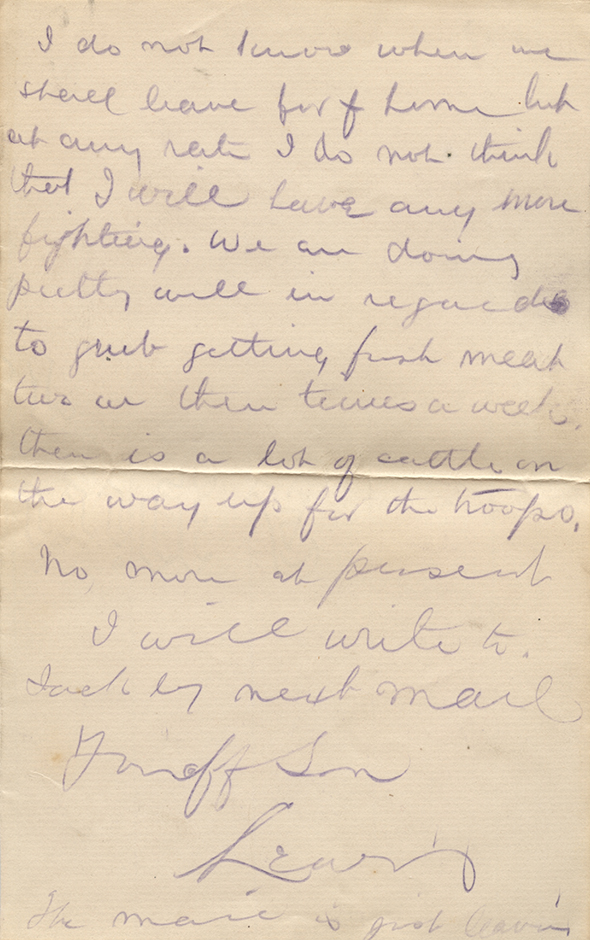 I do not know when we
shall leave for home but
at any rate I do not think
that I will have any more
fighting. We are doing
pretty well in regards
to grub getting fresh meat
two or three times a week.
there is a lot of cattle on
the way up for the troops.
No more at present
I will write to
Jack by next mail
Your aff Son
Lewis
The mail is just leaving